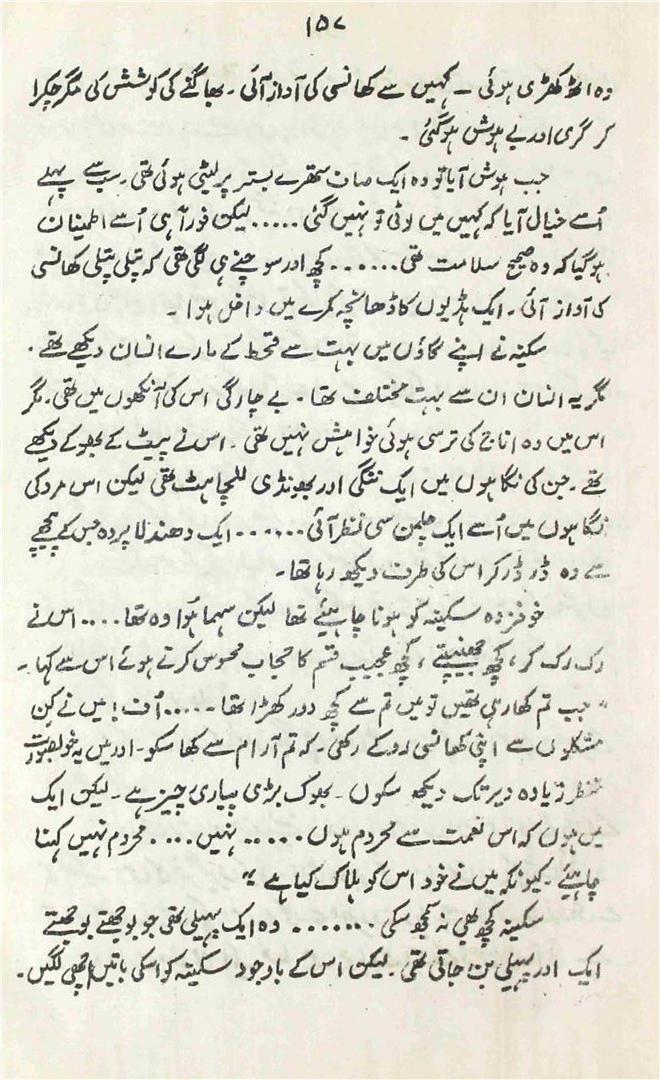 ۱۵۷
وہ اٹھ کھڑی ہوئی ۔ کہیں سے کھانسی کی آواز آئی ۔ بھاگنے کی کوشش کی مگر چکرا
کر گری اور بے ہوش ہو گئی ۔
جب ہوش آیا تو وہ ایک صاف ستھرے بستر پر لیٹی ہوئی تھی ۔ سب سے پہلے
اُسے خیال آیا کہ کہیں میں لوٹی تو نہیں گئی ..... لیکن فوراً ہی اُسے اطمینان
ہو گیا کہ وہ صحیح سلامت تھی ...... کچھ اور سوچنے ہی لگی تھی کہ پتلی پتلی کھانسی
کی آواز آئی ۔ ایک ہڈیوں کا ڈھانچہ کمرے میں داخل ہوا ۔
سکینہ نے اپنے گاؤں میں بہت سے قحط کے مارے انسان دیکھے تھے ۔
مگر یہ انسان ان سے بہت مختلف تھا ۔ بے چارگی اس کی آنکھوں میں تھی ۔ مگر
اس میں وہ اناج کی ترسی ہوئی خواہش نہیں تھی ۔ اس نے پیٹ کے بھوکے دیکھے
تھے ۔ جن کی نگاہوں میں ایک ننگی اور بھونڈی للچاہٹ تھی لیکن اس مرد کی
نگاہوں میں اُسے ایک چلمن سی نظر آئی ...... ایک دھندلا پردہ جس کے پیچھے
سے وہ ڈر ڈر کر اس کی طرف دیکھ رہا تھا ۔
خوفزدہ سکینہ کو ہونا چاہیئے تھا لیکن سہما ہُوا وہ تھا .... اس نے
رک رک کر ، کچھ جھینپتے ، کچھ عجیب قسم کا حجاب محسوس کرتے ہوئے اس سے کہا ۔
" جب تم کھا رہی تھیں تو میں تم سے کچھ دور کھڑا تھا ..... اُف ! میں نے کن
مشکلوں سے اپنی کھانسی روکے رکھی ۔ کہ تم آرام سے کھا سکو ۔ اور میں یہ خوبصورت
منظر زیادہ دیر تک دیکھ سکوں ۔ بھوک بڑی پیاری چیز ہے ۔ لیکن ایک
میں ہوں کہ اس نعمت سے محروم ہوں ..... نہیں .... محروم نہیں کہنا
چاہیئے ۔ کیونکہ میں نے خود اس کو ہلاک کیا ہے "
سکینہ کچھ بھی نہ سمجھ سکی ....... وہ ایک پہیلی تھی جو بوجھتے بوجھتے
ایک اور پہیلی بن جاتی تھی ۔ لیکن اس کے باوجود سکینہ کو اسکی باتیں اچھی لگیں ۔